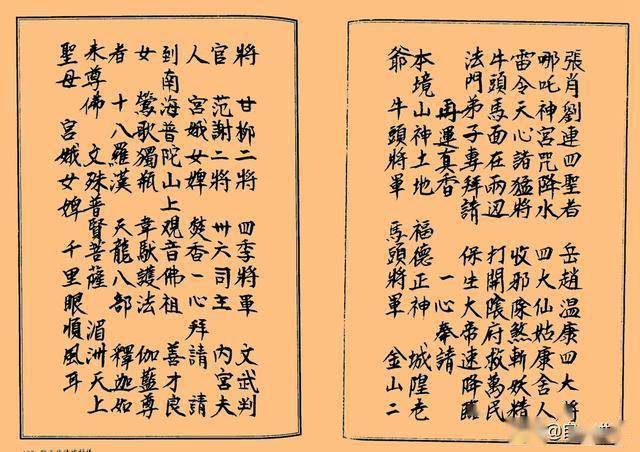 張肖劉連四聖者　岳趙溫康四大將
哪吒神宮咒降水　四大仙姑康舍人
雷令天心諸猛將　收邪除煞斬妖精
牛頭馬面在兩边　打開陰府救萬民
法門弟子專拜請　保生大帝速降臨
再運真香　一心奉請
本境山神土地　福德正神　城隍老
爺　牛頭將軍　馬頭將軍　金山二
將　甘柳二將　四季將軍　文武判
官　范謝二將　卅六司主　內宮夫
人　宮娥女婢　焚香一心拜請　請
到南海普陀山上觀音佛祖　善才良
女　鶯歌獨瓶　韋馱護法　伽藍尊
者　十八羅漢　天龍八部　釋迦如
來尊佛　文殊普賢菩薩　湄洲天上
聖母　宮娥女婢　千里眼順風耳